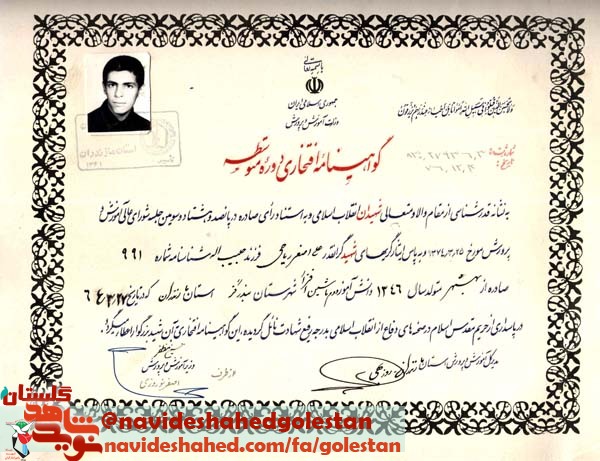 باسمه تعالی
جمهوری اسلامی ایران
وزارت آموزش و پرورش
گواهینامه افتخاری دوره متوسطه
استان مازندران
۱۳۶۱
به نشانه قدرشناسی از مقام والا و متعالی شهیدان انقلاب اسلامی و به استناد رأی صادره در پانصد و هشتاد و سومین جلسه شورای عالی آموزش و
پرورش مورخ ۱۳۷۴/۳/۲۵ و به پاس ایثارگریهای شهید گرانقدر علی اصغر ریاحی فرزند حبیب اله شناسنامه شماره ۹۹۱
صادره از بهشهر متولد سال ۱۳۴۶ دانش آموز دوم ماشین افزار شهرستان بندرگز استان مازندران که در تاریخ
در پاسداری از حریم مقدس اسلام در صحنه های دفاع از انقلاب اسلامی به درجه رفیع شهادت نائل گردیده، این گواهینامه افتخاری آن شهید بزرگوار اعطا میگردد
وزیر آموزش و پرورش
از طرف
اصغر نوروزی
مدیر کل آموزش و پرورش استان مازندران
نوید شاهد
گلستان
@navideshahedgolestan
navideshahed.com/fa/golestan